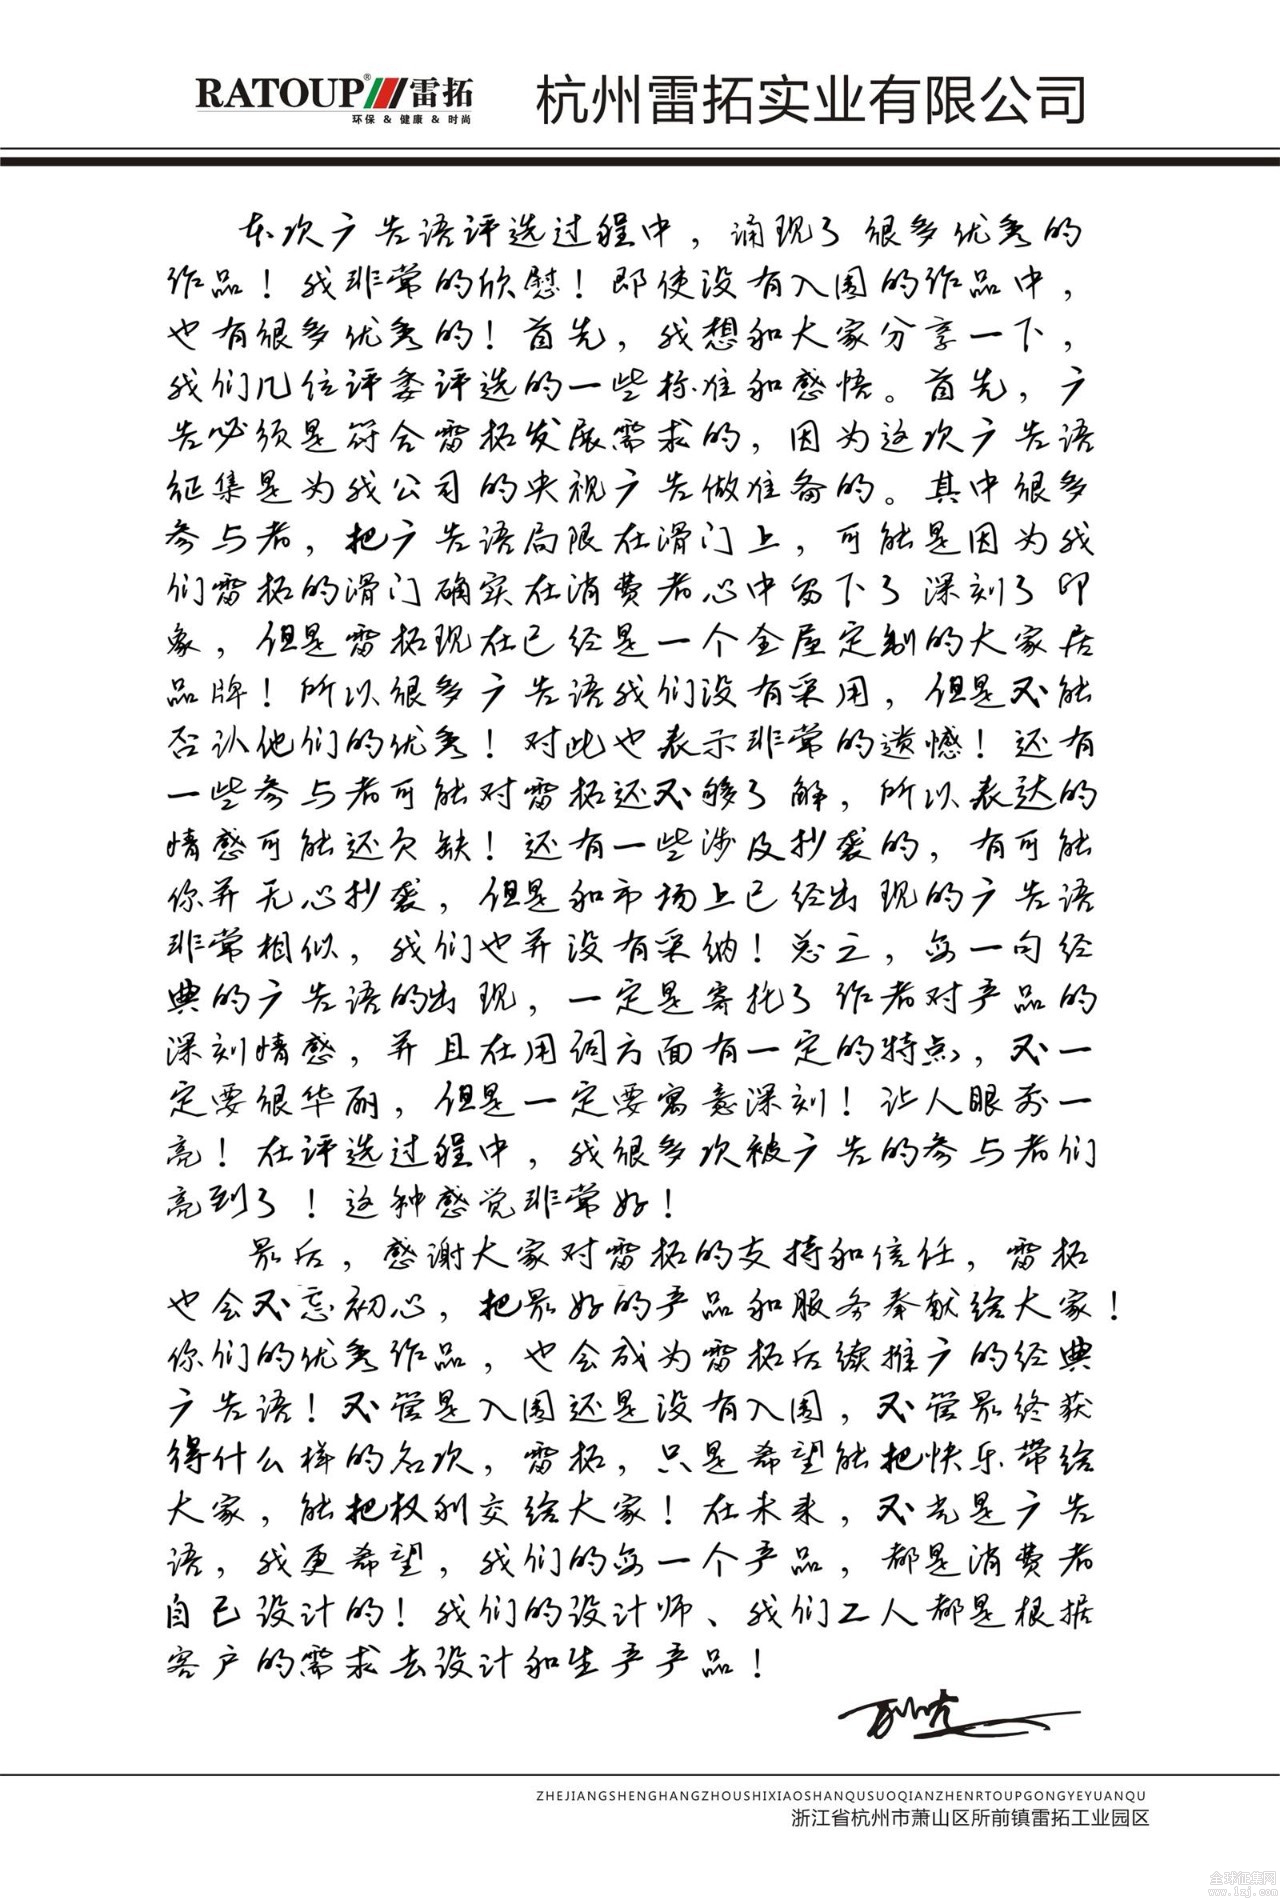 RATOUP® 雷拓
环保 & 健康 & 时尚
杭州雷拓实业有限公司
本次广告语评选过程中，涌现了很多优秀的
作品！我非常的欣慰！即使没有入围的作品中，
也有很多优秀的！首先，我想和大家分享一下，
我们几位评委评选的一些标准和感悟。首先，广
告必须是符合雷拓发展需求的，因为这次广告语
征集是为我公司的央视广告做准备的。其中很多
参与者，把广告语局限在滑门上，可能是因为我
们雷拓的滑门确实在消费者心中留下了深刻了印
象，但是雷拓现在已经是一个全屋定制的大家居
品牌！所以很多广告语我们没有采用，但是不能
否认他们的优秀！对此也表示非常的遗憾！还有
一些参与者可能对雷拓还不够了解，所以表达的
情感可能还欠缺！还有一些涉及抄袭的，有可能
你并无心抄袭，但是和市场上已经出现的广告语
非常相似，我们也并没有采纳！总之，每一句经
典的广告语的出现，一定是寄托了作者对产品的
深刻情感，并且在用词方面有一定的特点，不一
定要很华丽，但是一定要寓意深刻！让人眼前一
亮！在评选过程中，我很多次被广告的参与者们
亮到了！这种感觉非常好！
最后，感谢大家对雷拓的支持和信任，雷拓
也会不忘初心，把最好的产品和服务奉献给大家！
你们的优秀作品，也会成为雷拓后续推广的经典
广告语！不管是入围还是没有入围，不管最终获
得什么样的名次，雷拓，只是希望能把快乐带给
大家，能把权利交给大家！在未来，不光是广告
语，我更希望，我们的每一个产品，都是消费者
自己设计的！我们的设计师、我们工人都是根据
客户的需求去设计和生产产品！
ZHEJIANGSHENGHANGZHOUSHIXIAOSHANQUSUOQIANZHENRTOUPGONGYEYUANQU
浙江省杭州市萧山区所前镇雷拓工业园区
全球征集网
www.1zj.com